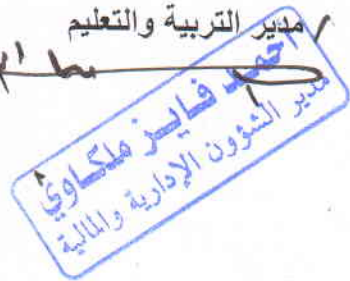 / مدير التربية والتعليم
احمد فايز ملكاوي
مدير الشؤون الإدارية والمالية